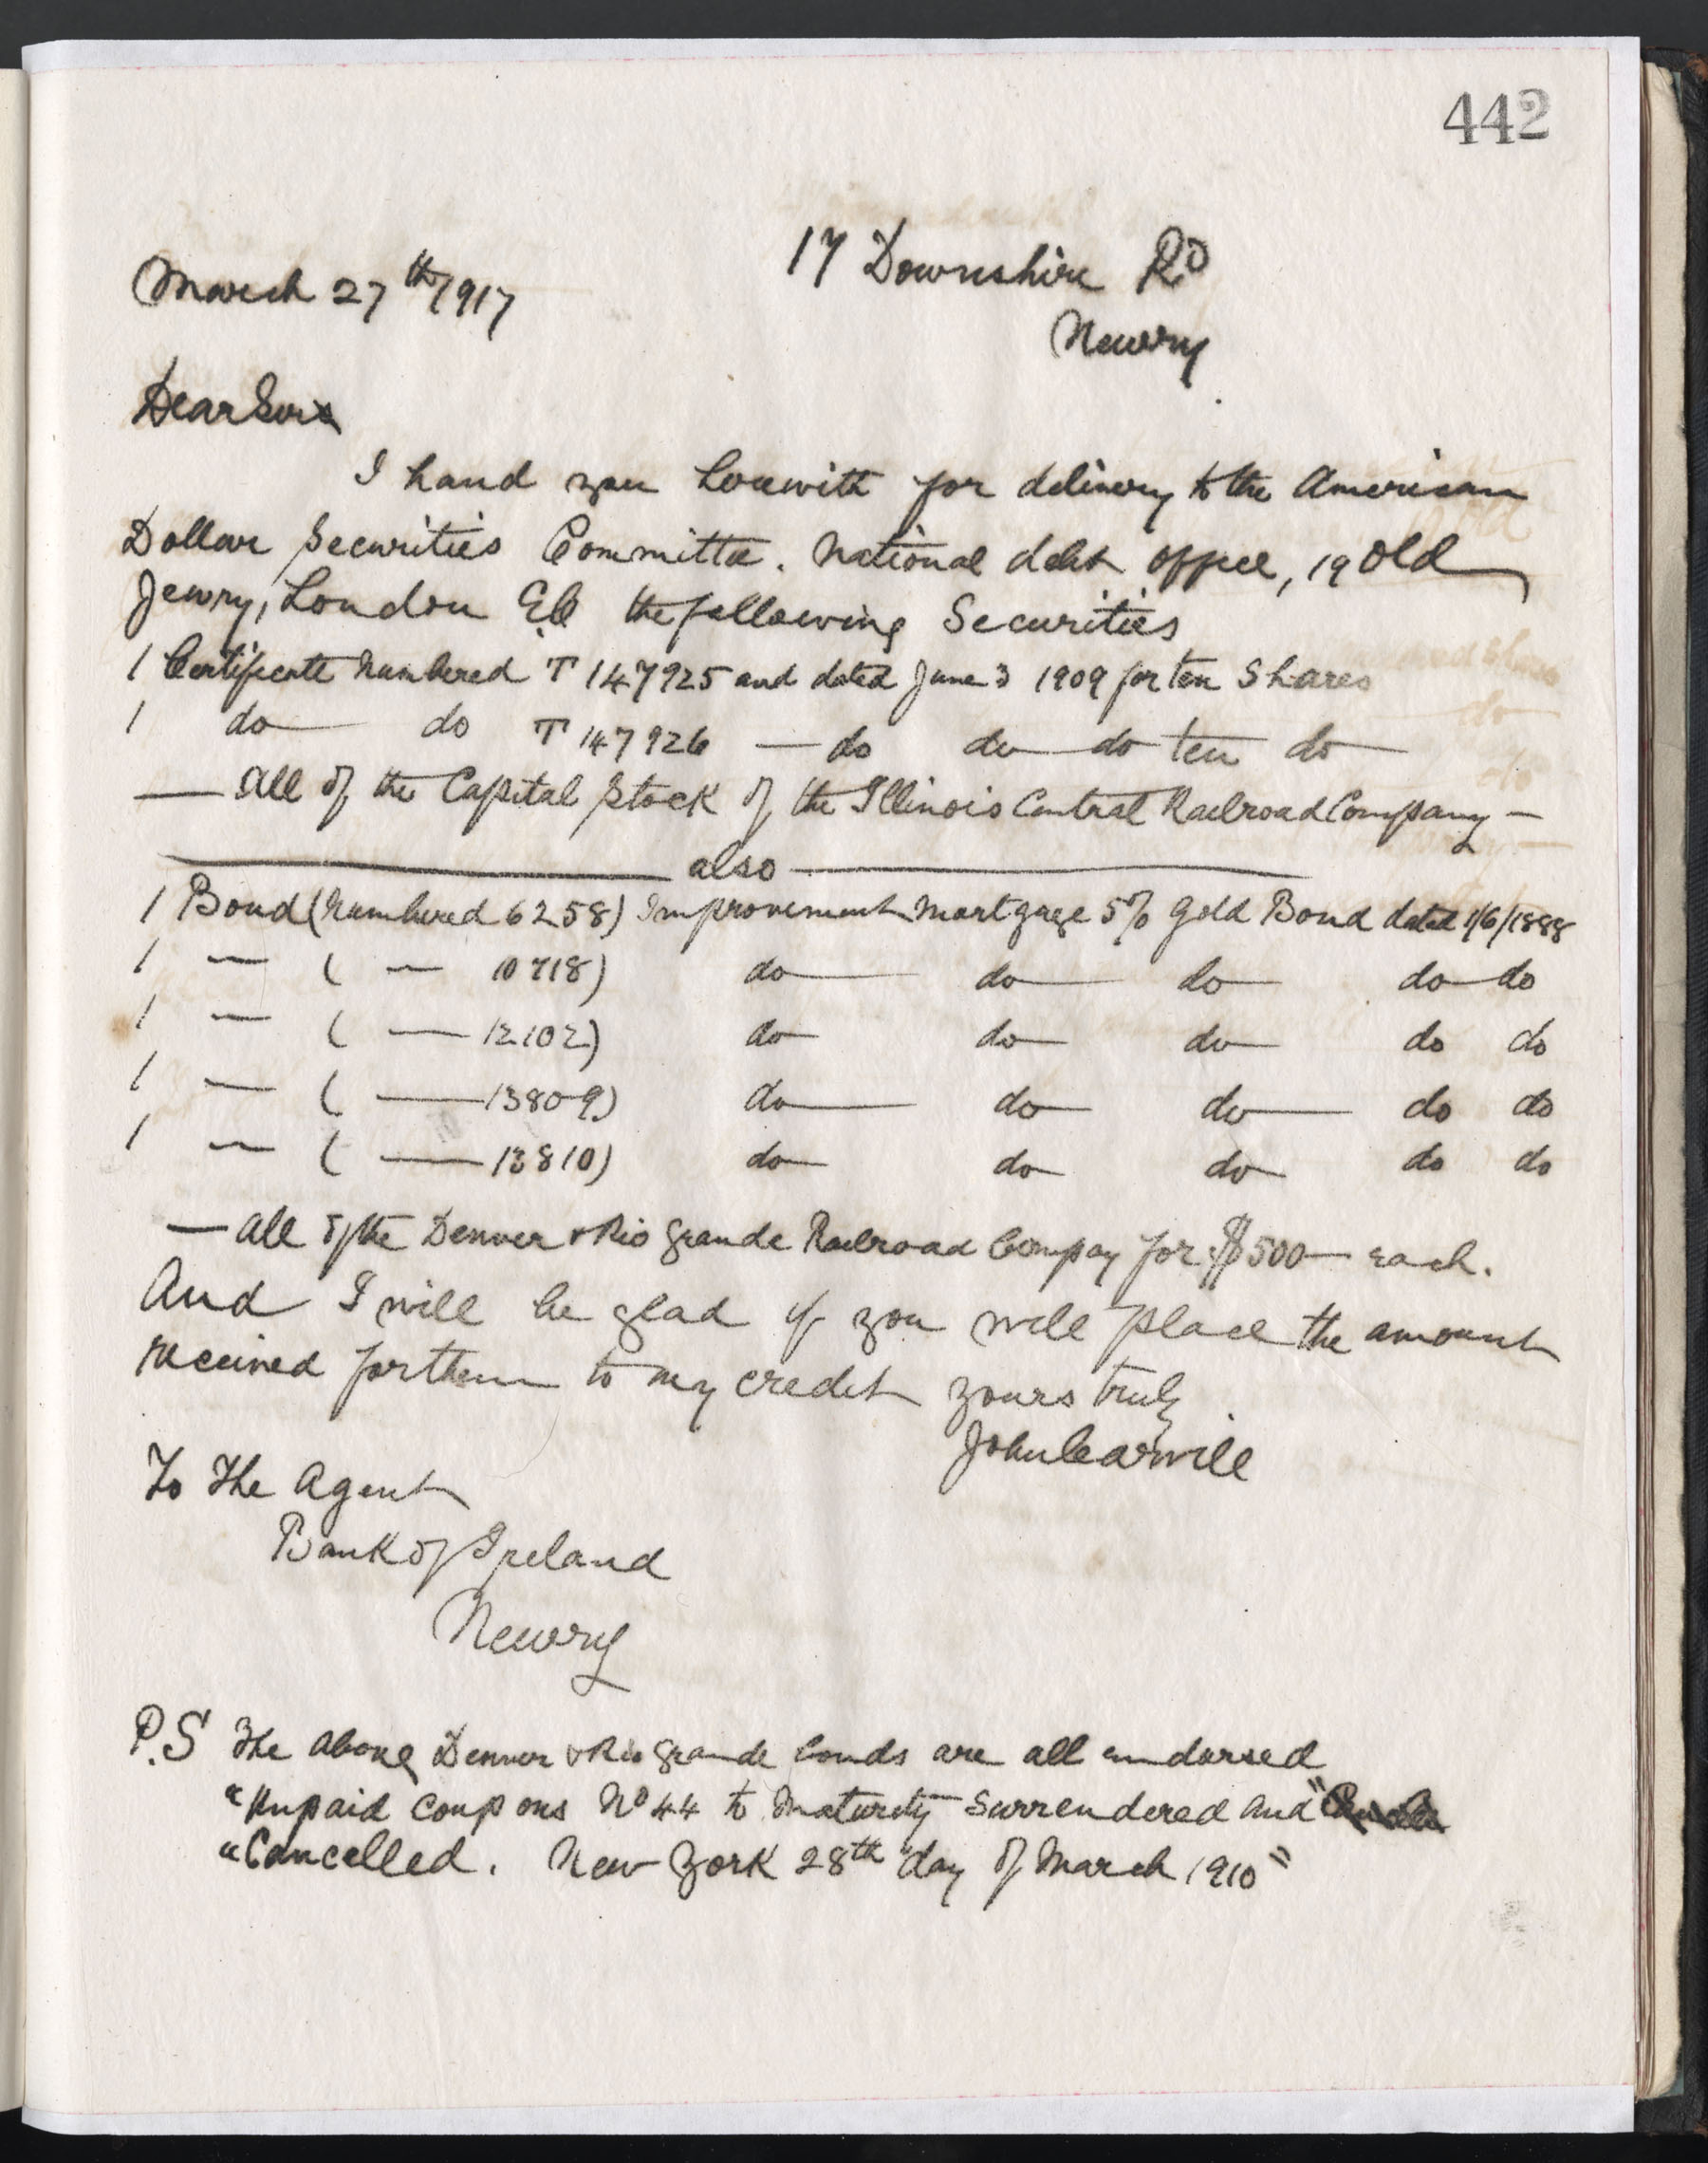 442
17 Downshire Rd
March 27th/1917
Newry
Dear Sir
I hand you herewith for delivery to the American
Dollar Securities Committee. National debt office, 19 Old
Jewry, London E.C the following Securities
1 Certificate numbered T 147925 and dated June 3 1909 for ten Shares
1 do do T 147926 — do do do ten do
— All of the Capital Stock of the Illinois Central Railroad Company —
also
1 Bond (numbered 6258) Improvement Mortgage 5% Gold Bond dated 1/6/1888
1 — ( — 10718) do do do do do
1 — ( — 12102) do do do do do
1 — ( — 13809) do do do do do
1 — ( — 13810) do do do do do
— All of the Denver & Rio Grande Railroad Compay for $500 — each.
And I will be glad if you will place the amount
received for them to my credit yours truly
John Carvill
To The Agent
Bank of Ireland
Newry
P.S The above Denver & Rio Grande bonds are all endorsed
"Unpaid coupons No 44 to maturity surrendered and"
"Cancelled. New York 28th day of March 1910"